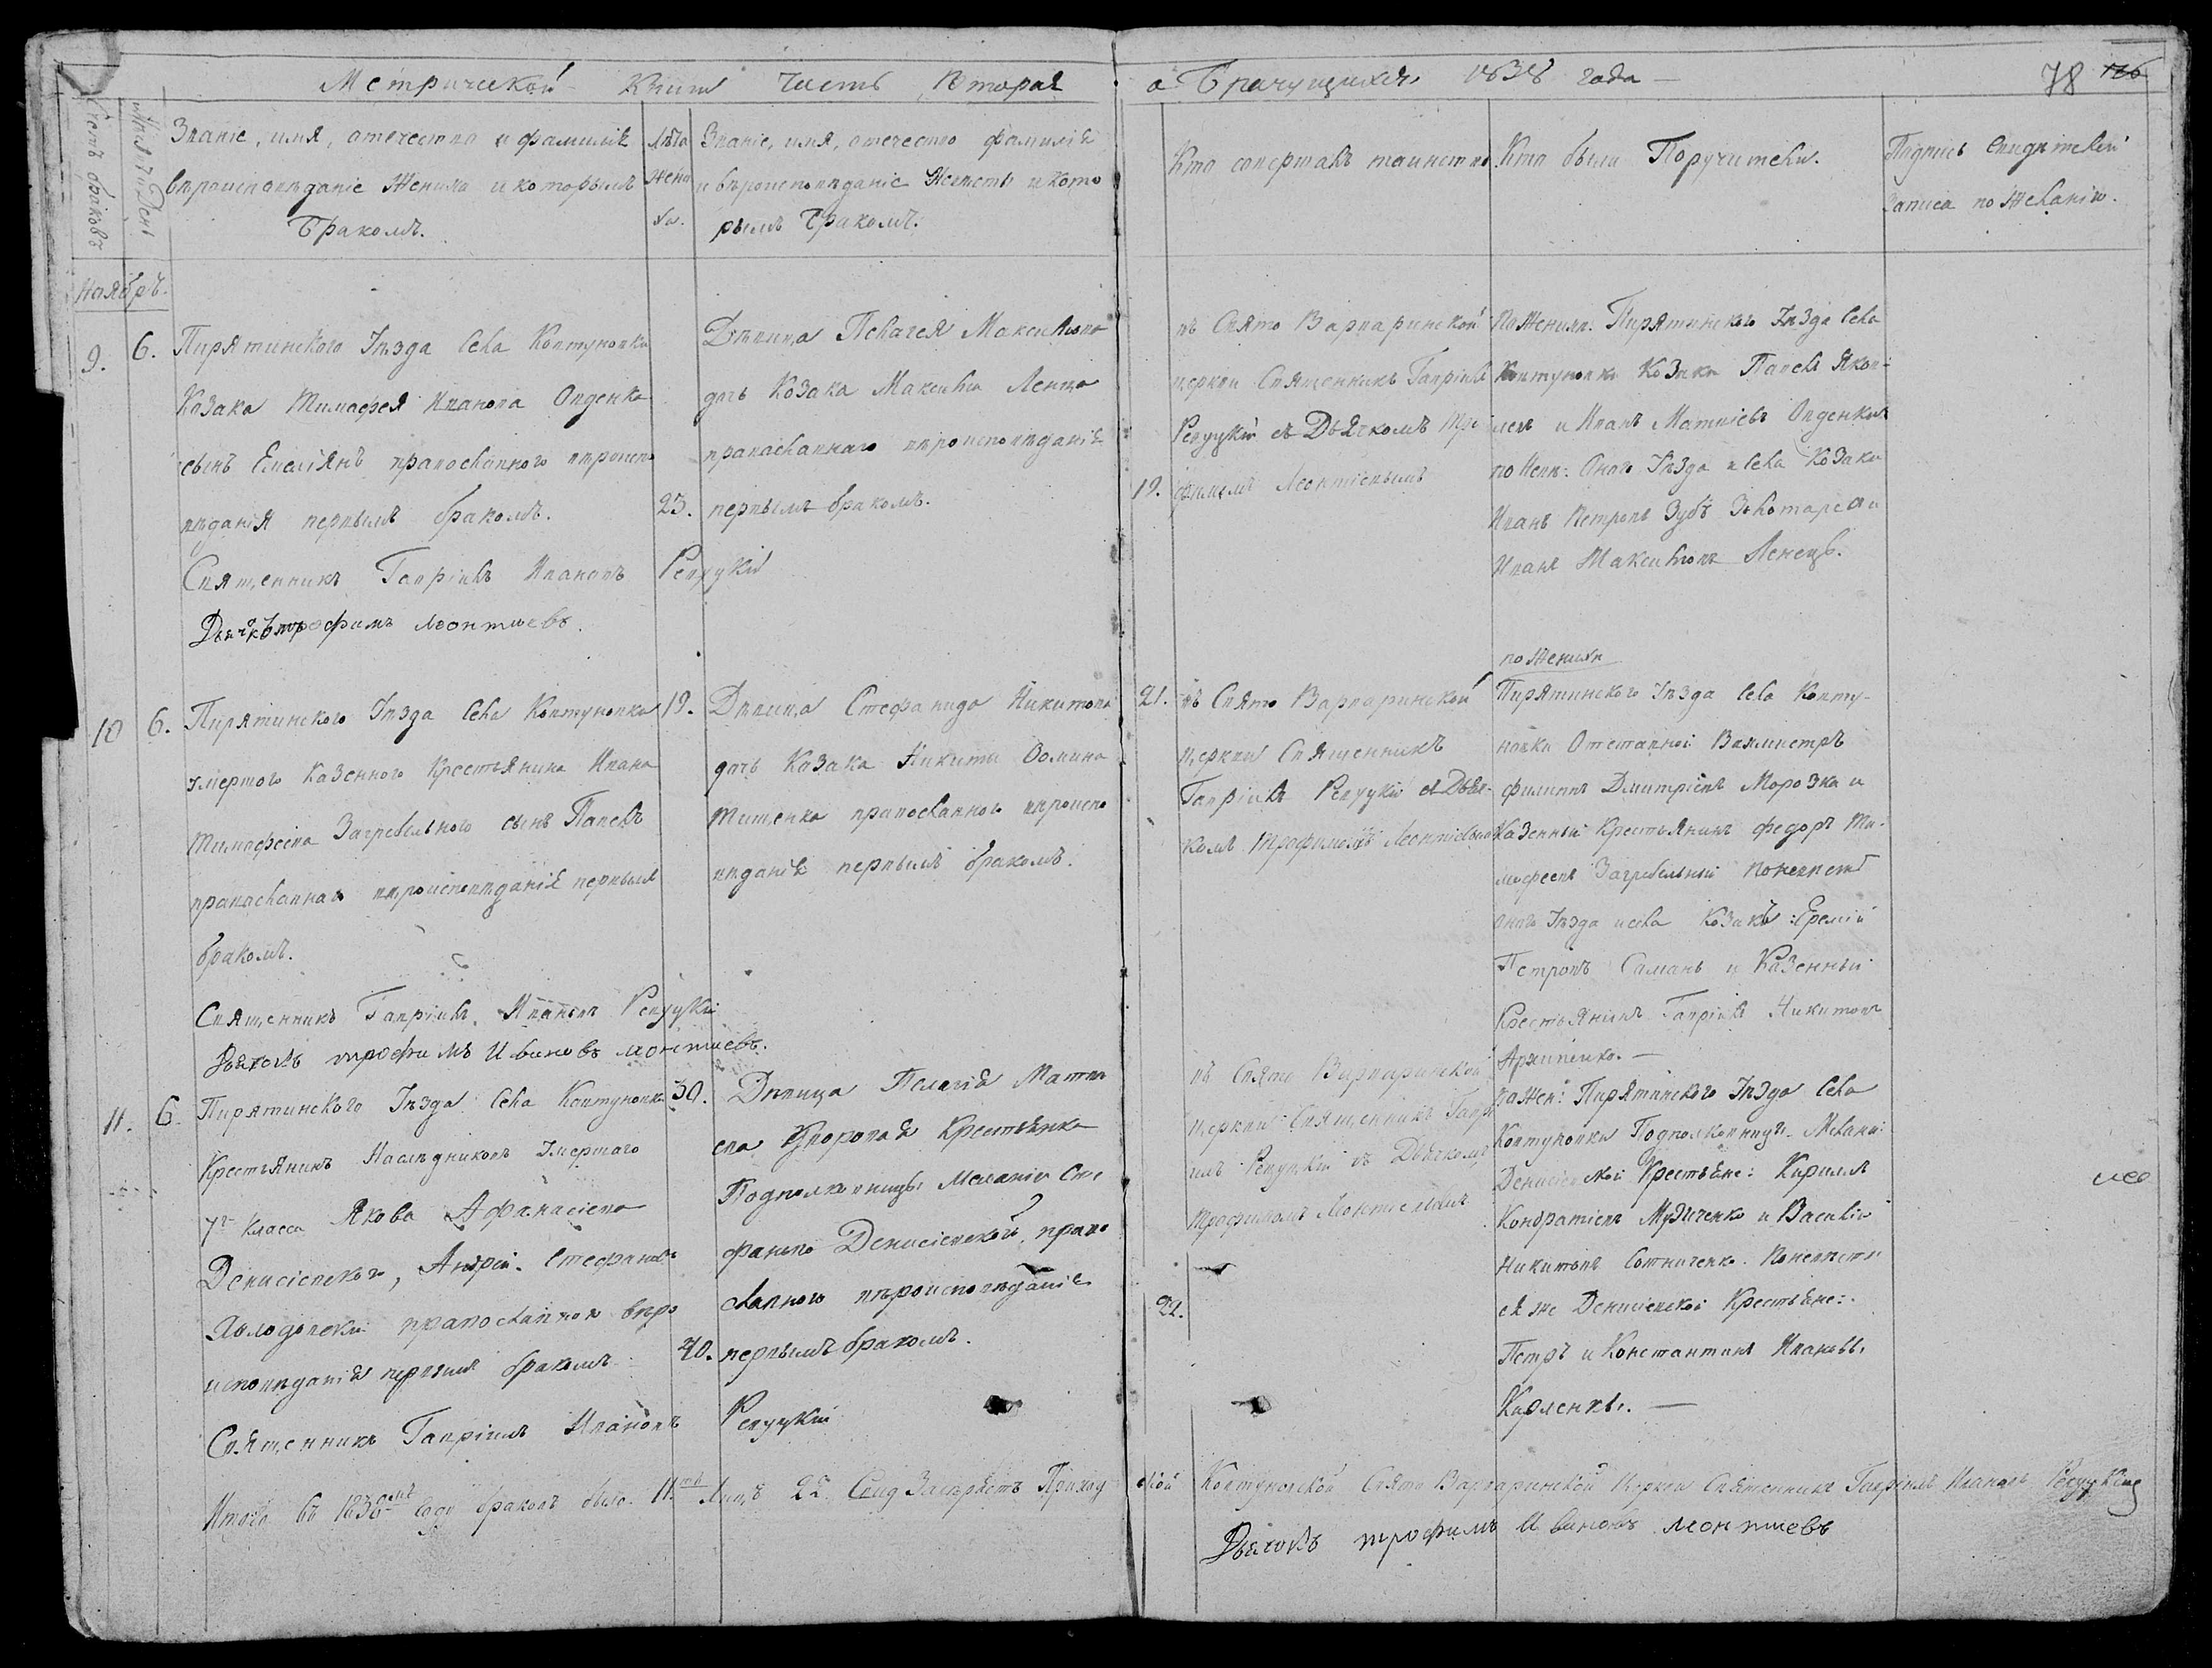 Метрической Книги Часть Вторая
о Брачущихся 1838 года
78 126
Счетъ браковъ
Месяцъ и День
Званіе, имя, отечество и фамилія
вѣроисповѣданіе Жениха и которымъ
Бракомъ.
Лѣта
Жени
ха.
Званіе, имя, отечество фамилія
и вѣроисповѣданіе Невесты и кото
рымъ бракомъ.
Кто совершалъ таинство.
Кто были Поручители.
Подпись свидѣтелей
записа по желанію.
Ноябрь.
9.
6.
Пирятинского Уѣзда Села Ковтуновки
Козака Тимофея Иванова Овденка
сынъ Емеліянъ православного вѣроиспо
вѣданія первымъ бракомъ.
23.
Священникъ Гавріилъ Ивановъ Ревуцкій
Дьячекъ трофимъ леонтиевъ.
Дѣвица Пелагея Максимова
дочь Козака Максима Ленца
православнаго вѣроисповѣданія
первымъ бракомъ.
19.
въ Свято Варваринской
церкви Священникъ Гавріилъ
Ревуцкій съ Дьячкомъ Тро
фимомъ Леонтіевымъ
По Жених. Пирятинского Уѣзда Села
Ковтуновки Козаки Павелъ Яков-
левъ и Иванъ Матвіевъ Овденки
по Нев: Оного Уѣзда и Села Козаки
Иванъ Петровъ Зубъ Золотарь и
Иванъ Максимовъ Ленецъ.
10
6.
Пирятинского Уѣзда Села Ковтуновки
умершого Казенного Крестьянина Ивана
Тимофеева Загребельного сынъ Павелъ
православнаго вѣроисповѣданія первымъ
бракомъ.
19.
Священникъ Гавріилъ Ивановъ Ревуцкій
Дьячокъ трофимъ Ивановъ леонтиевъ.
Дѣвица Стефанида Никитова
дочь Козака Никиты Фомина
Тищенка православного вѣроиспо
вѣданія первымъ бракомъ.
21.
въ Свято Варваринской
церкви Священникъ
Гавріилъ Ревуцкій съ Дьяч-
комъ Трофимомъ Леонтіевымъ
по Жених
Пирятинского Уѣзда Села Ковту-
новки Отставной Вахмистръ
филиппъ Дмитріевъ Морозка и
Казенный Крестьянинъ федоръ Ти-
мофеевъ Загребельный по невестѣ
оногъ Уѣзда и села Козакъ Еремій
Петровъ Саманъ и Казенный
Крестьянинъ Гавріилъ Никитовъ
Архипенко. —
11.
6.
Пирятинского Уѣзда Села Ковтуновки
Крестьянинъ Наслѣдниковъ Умершаго
7го класса Якова Афанасіева
Денисіевского, Андрей Стефановъ
Холодовскій православного вѣро
исповѣданія первымъ бракомъ
30.
40.
Священникъ Гавріилъ Ивановъ Ревуцкій
Дѣвица Пелагія Матвѣ
ева Крестьянка
Подполковницы Меланіи Сте
фановой Денисіевской, право
славного вѣроисповѣданія
первымъ бракомъ.
22.
въ Свято Варваринской
церкви Священникъ Гаврі
илъ Ревуцкій съ Дьячкомъ
Трофимомъ Леонтіевымъ
по Жен: Пирятинского Уѣзда Села
Ковтуновки Подполковницы Мелани:
Денисіевской Крестьяне: Кириллъ
Кондратіевъ и Василій
Никитовъ Сотниченко. По невести
ея же Денисіевской Крестьяне:
Петръ и Константинъ Ивановы
Карленки. —
Итого въ 1838мъ Году браковъ было 11ть Лицъ 22. Свид Засърѣетъ Приход
ской Ковтуновской Свято Варваринской Церкви Священникъ Гавріилъ Ивановъ Ревуцкій
Дьячокъ трофимъ Ивановъ леонтиевъ